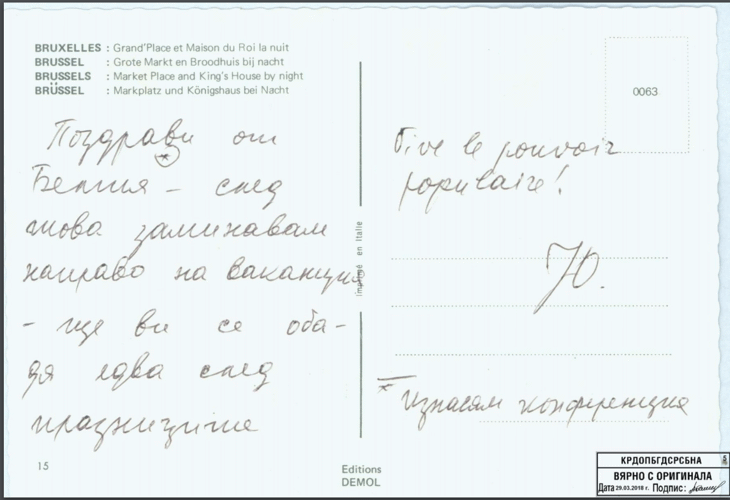 BRUXELLES : Grand'Place et Maison du Roi la nuit
BRUSSEL : Grote Markt en Broodhuis bij nacht
BRUSSELS : Market Place and King's House by night
BRÜSSEL : Markplatz und Königshaus bei Nacht
0063
Поздрави от
*
Белгия – след
това заминавам
направо на ваканция
- ще ви се оба-
дя едва след
празниците
15
imprimé en Italie
Editions
DEMOL
Vive le pouvoir
populaire!
Ю.
* Изнасям конференция
КРДОПБГДСРСБНА
ВЯРНО С ОРИГИНАЛА
Дата 29.03.2018 г. Подпис: